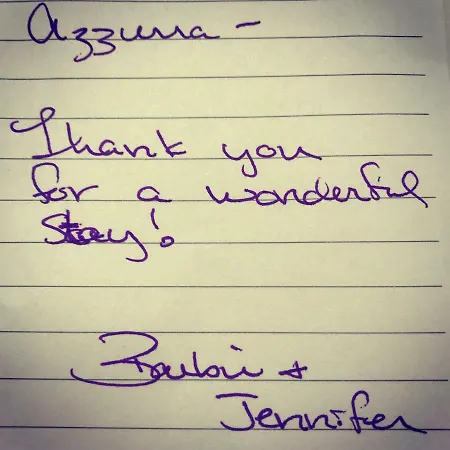 Azzurra -
Thank you
for a wonderful
Stay!
Barbri +
Jennifer